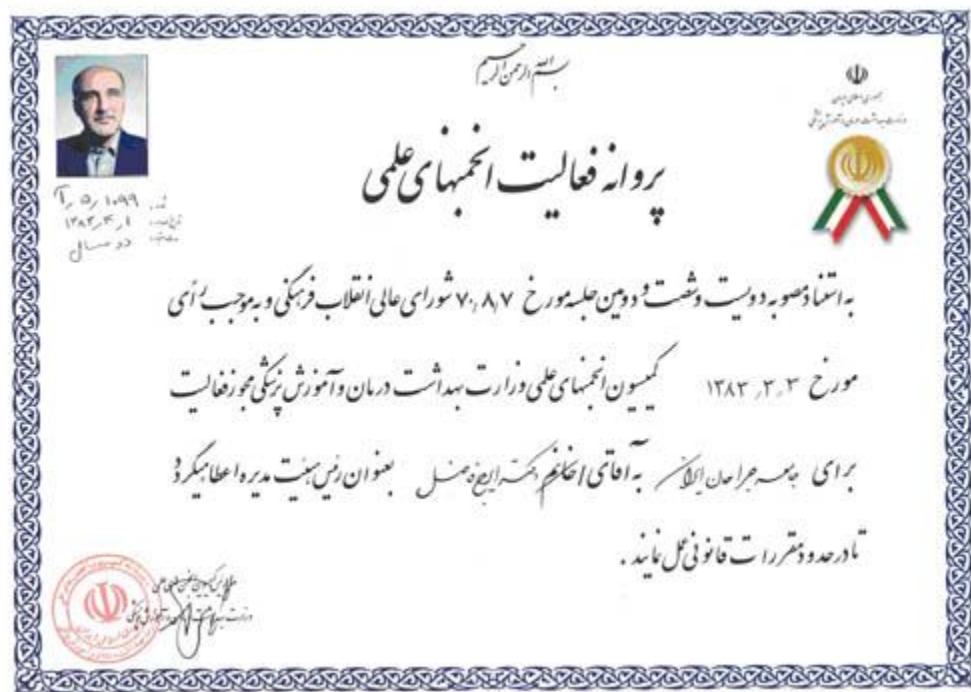 بسم الله الرحمن الرحیم
جمهوری اسلامی ایران
وزارت بهداشت درمان و آموزش پزشکی
پروانه فعالیت انجمنهای علمی
۱۰۹۹/۵/آ
۱۳۸۳/۴/۱
دو سال
به استناد مصوبه دویست و شصت و دومین جلسه مورخ ۷۰٫۸٫۷ شورای عالی انقلاب فرهنگی و به موجب رأی
مورخ ۱۳۸۳٫۳٫۳ کمیسیون انجمنهای علمی وزارت بهداشت درمان و آموزش پزشکی مجوز فعالیت
برای جامعه جراحان ایران به آقای/خانم دکتر ایرج فاضل بعنوان رئیس هیئت مدیره اعطا میگردد
تا در حدود مقررات قانونی عمل نمایند .